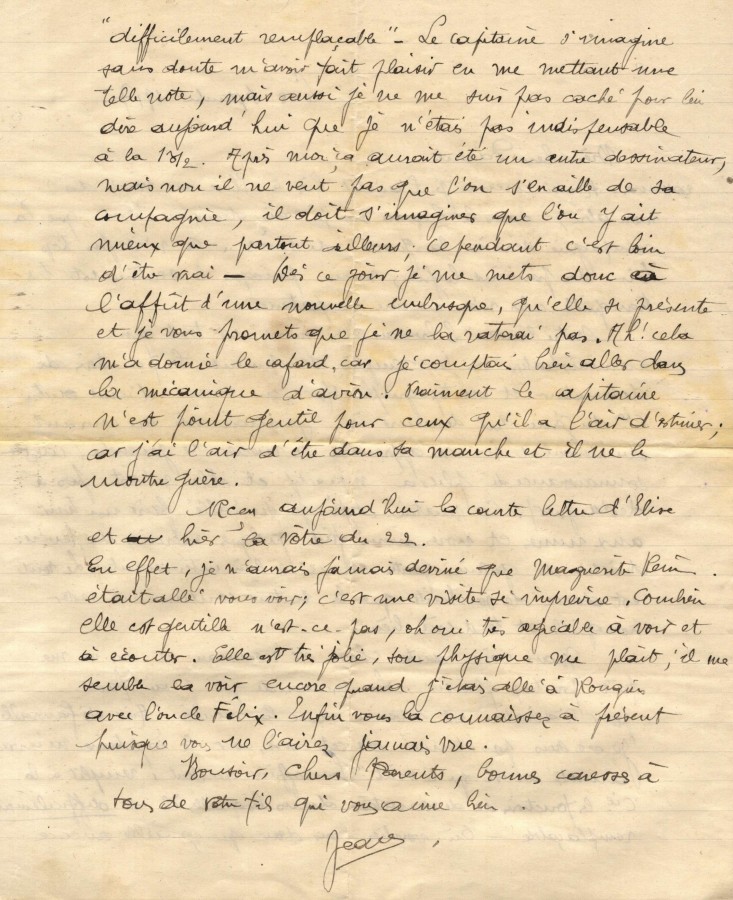 "difficilement remplaçable" – Le capitaine s'imagine
sans doute m'avoir fait plaisir en me mettant une
telle note, mais aussi je ne me suis pas caché pour lui
dire aujourd'hui que je n'étais pas indispensable
à la 13/2. Après moi ça aurait été un autre dessinateur,
mais non il ne veut pas que l'on s'en aille de sa
compagnie, il doit s'imaginer que l'on y ait
mieux que partout ailleurs, cependant c'est loin
d'être vrai – Dès ce jour je me mets donc à
l'affût d'une nouvelle embusque, qu'elle se présente
et je vous promets que je ne la raterai pas. Ah! cela
m'a donné le cafard, car je comptais bien aller dans
la mécanique d'avion. Vraiment le capitaine
n'est point gentil pour ceux qu'il a l'air d'estimer;
car j'ai l'air d'être dans sa manche et il ne le
montre guère.
Reçu aujourd'hui la courte lettre d'Elise
et hier la vôtre du 22.
En effet, je n'aurais jamais deviné que Marguerite
était allé vous voir; c'est une visite si imprévue. Combien
elle est gentille n'est-ce pas, oh oui très agréable à voir et
à écouter. Elle est très jolie, son physique me plaît, il me
semble la voir encore quand j'étais allé à Rougiers
avec l'oncle Félix. Enfin vous la connaissez à présent
puisque vous ne l'aviez jamais vue.
Bonsoir, chers Parents, bonnes caresses à
tous de votre fils qui vous aime bien.
Jean